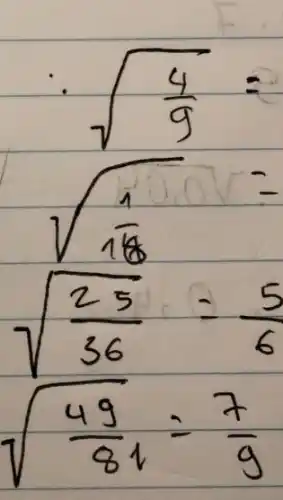 ∴ √(4/9) =
√(1/16) =
√(25/36) = 5/6
√(49/81) = 7/9